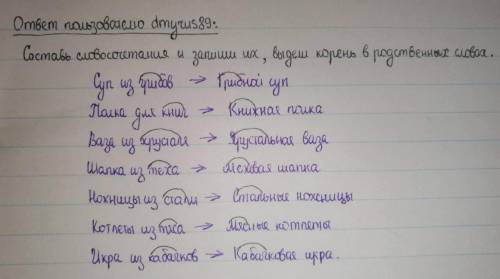 Ответ пользователю dmyrus89:
Составь словосочетания и запиши их, выдели корень в родственных словах.
Суп из грибов → Грибной суп
Полка для книг → Книжная полка
Ваза из хрусталя → Хрустальная ваза
Шапка из меха → Меховая шапка
Ножницы из стали → Стальные ножницы
Котлеты из мяса → Мясные котлеты
Икра из кабачков → Кабачковая икра.